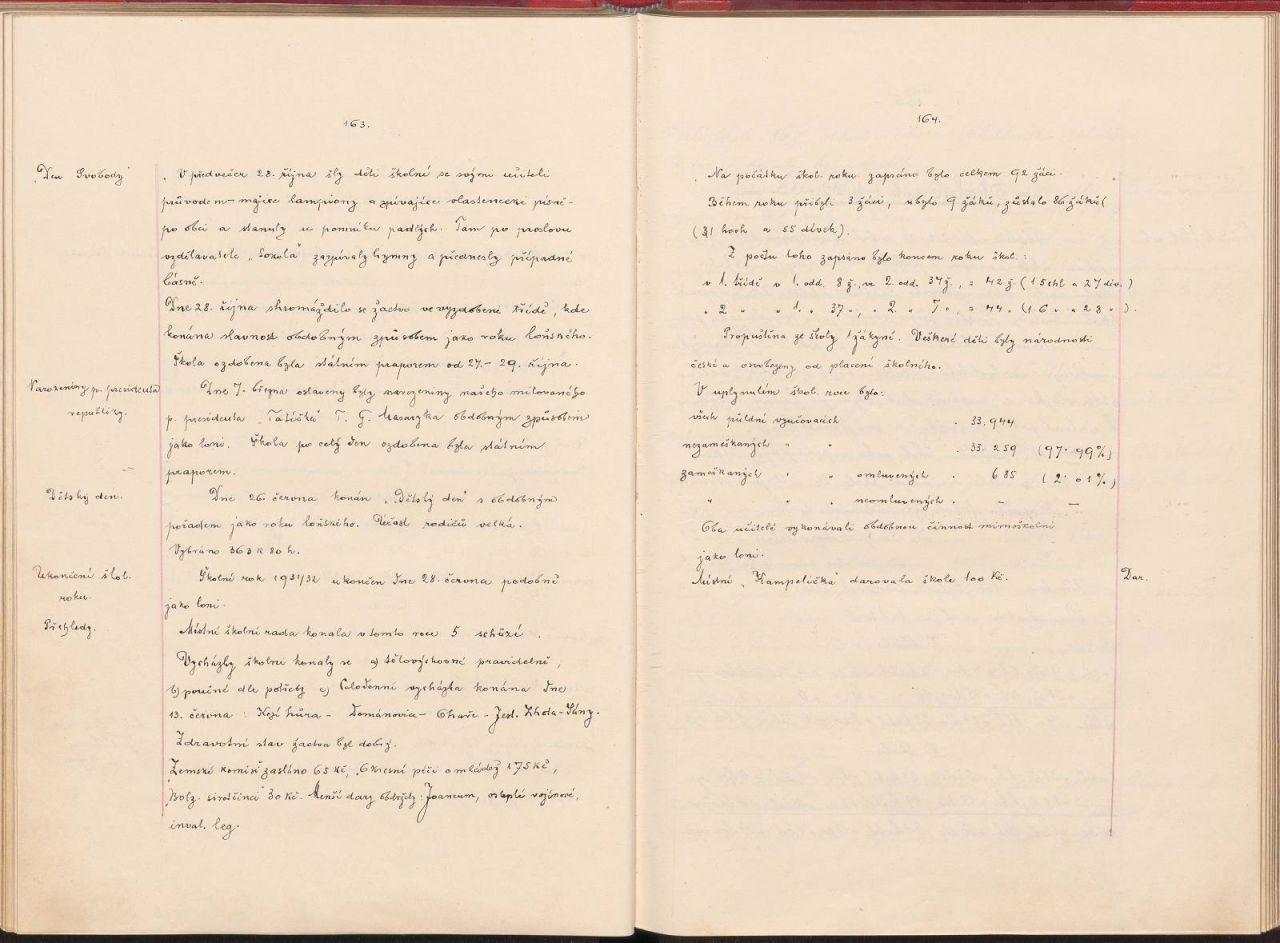 163.
„Den Svobody"
V předvečer 28. října šly děti školní se svými učiteli
průvodem – majíce lampiony a zpívajíce vlastenecké písně –
po obci a stanuly u pomníku padlých. Tam po proslovu
vzdělavatele „Sokola" zazpívaly hymny a přednesly případné
básně.
Dne 28. října shromáždilo se žactvo ve vyzdobené třídě, kde
konána slavnost obdobným způsobem jako roku loňského.
Škola ozdobena byla státním praporem od 27. – 29. října.
Narozeniny p. presidenta
republiky.
Dne 7. března oslaveny byly narozeniny našeho milovaného
p. presidenta „Tatíčka" T. G. Masaryka obdobným způsobem
jako loni. Škola po celý den ozdobena byla státním
praporem.
Dětský den.
Dne 26 června konán „Dětský den" s obdobným
pořadem jako roku loňského. Účast rodičů velká.
Vybráno 363 K 80 h.
Ukončení škol.
roku.
Školní rok 1931/32 ukončen dne 28. června podobně
jako loni.
Přehledy.
Místní školní rada konala v tomto roce 5 schůzí.
Vycházky školní konaly se a) tělovýchovné pravidelně,
b) poučné dle potřeby c) Celodenní vycházka konána dne
13. června: Kozí hůra – Domanovic – Ohaře – Jest. Lhota – Sány.
Zdravotní stav žactva byl dobrý.
„Zemské komisi" zasláno 65 Kč, „Okresní péči o mládež" 175 Kč,
sirotčinci" 30 Kč. Menší dary obdržely: Joaneum, osleplí vojínové,
inval. leg.
164.
Na počátku škol. roku zapsáno bylo celkem 92 žáci.
Během roku přibyli 3 žáci, ubylo 9 žáků, zůstalo 86 žáků (
(31 hoch a 55 dívek).
Z počtu toho zapsáno bylo koncem roku škol.:
v 1. třídě v 1. odd. 8 ž., ve 2. odd. 34 ž., = 42 ž (15 chl a 27 dív.)
" 2 " " 1. " 37 ", " 2. " 7 ", = 44 " (16 " " 28 " ).
Propuštěna ze školy 1 žákyně. Veškeré děti byly národnosti
české a osvobozeny od placení školného.
V uplynulém škol. roce bylo:
všech půldní vyučovacích . 33.944
nezameškaných " " . 33.259 (97·99%)
zameškaných " " omluvených . 685 (2·01%)
" " " neomluvených . – –
Oba učitelé vykonávali obdobnou činnost mimoškolní
jako loni.
Místní „Kampelička" darovala škole 100 Kč.
Dar.